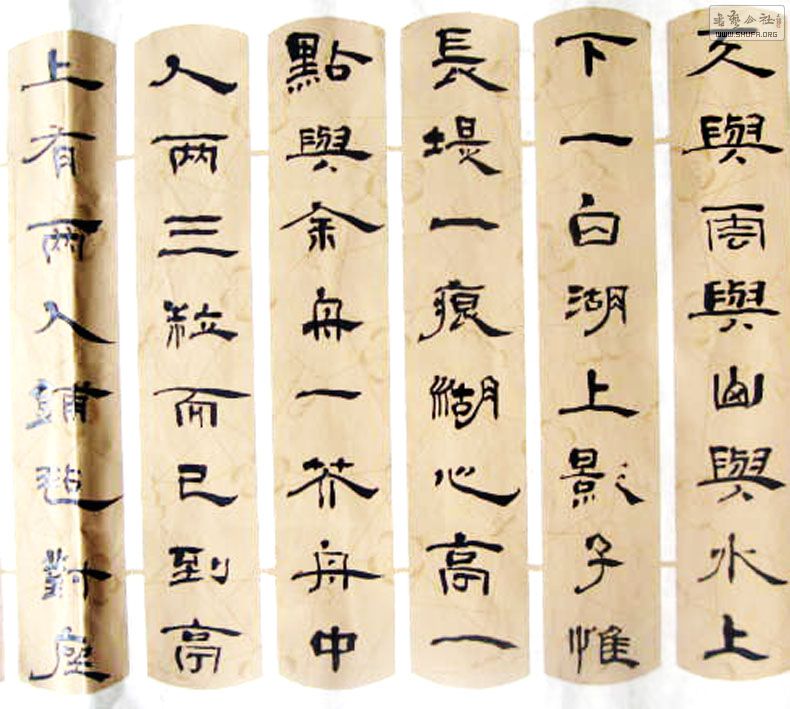 天與雲與山與水上
下一白湖上影子惟
長堤一痕湖心亭一
點與余舟一芥舟中
人两三粒而已到亭
上有两人鋪氈對座
书艺公社
WWW.SHUFA.ORG